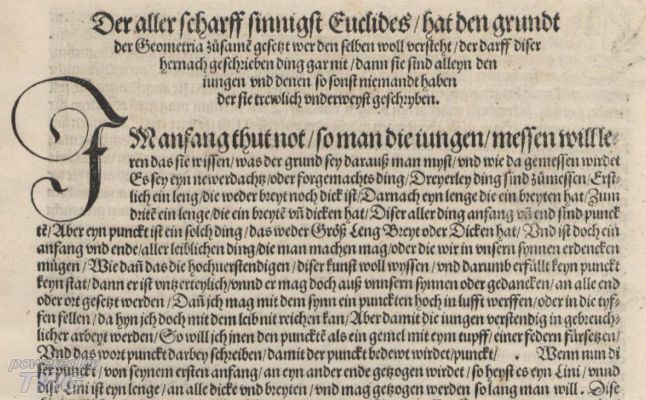 Der aller scharff sinnigst Euclides / hat den grundt
der Geometria zůsamẽ gesetzt wer den selben woll versteht / der darff diser
hernach geschrieben ding gar nit / dann sie sind alleyn den
iungen vnd denen so sonst niemandt haben
der sie trewlich vnderweyst geschryben.
IM anfang thut not / so man die iungen / messen will le-
ren das sie wissen / was der grund sey darauß man myst / vnd wie da gemessen wirdet
Es sey eyn newerdachtz / oder forgemachts ding / Dreyerley ding sind zůmessen / Erst-
lich ein leng / die weder breyt noch dick ist / Darnach eyn lenge die ein breyten hat / Zum
dritẽ ein lenge / die ein breytẽ vñ dicken hat / Diser aller ding anfang vñ end sind punck
tẽ / Aber eyn punckt ist ein solch ding / das weder Größ Leng Breyt oder Dicken hat / Vnd ist doch ein
anfang vnd ende / aller leiblichen ding / die man machen mag / oder die wir in vnsern synnen erdencken
mügen / Wie dañ das die hochuerstendigen / diser kunst woll wyssen / vnd darumb erfüllt keyn punckt
keyn stat / dann er ist vntzerteylich / vnnd er mag doch auß vnnsern synnen oder gedancken / an alle end
oder ort gesetzt werden / Dañ jch mag mit dem synn ein puncktẽn hoch in lufft werffen / oder in die tyf-
fen fellen / da hyn jch doch mit dem leib nit reichen kan / Aber damit die iungen verstendig in gebreuch-
licher arbeyt werden / So will jch jnen den puncktẽ als ein gemel mit eym tupff / einer federn fürsetzen /
Vnd das wort punckt darbey schreiben / damit der punckt bedewt wirdet / punckt / . Wenn nun di
ser punckt / von seynem ersten anfang / an eyn ander ende getzogen wirdet / so heyst es eyn Lini / vnnd
dise Lini ist eyn lenge / an alle dicke vnd breyten / vnd mag getzogen werden so lang man will. Dise
powered by